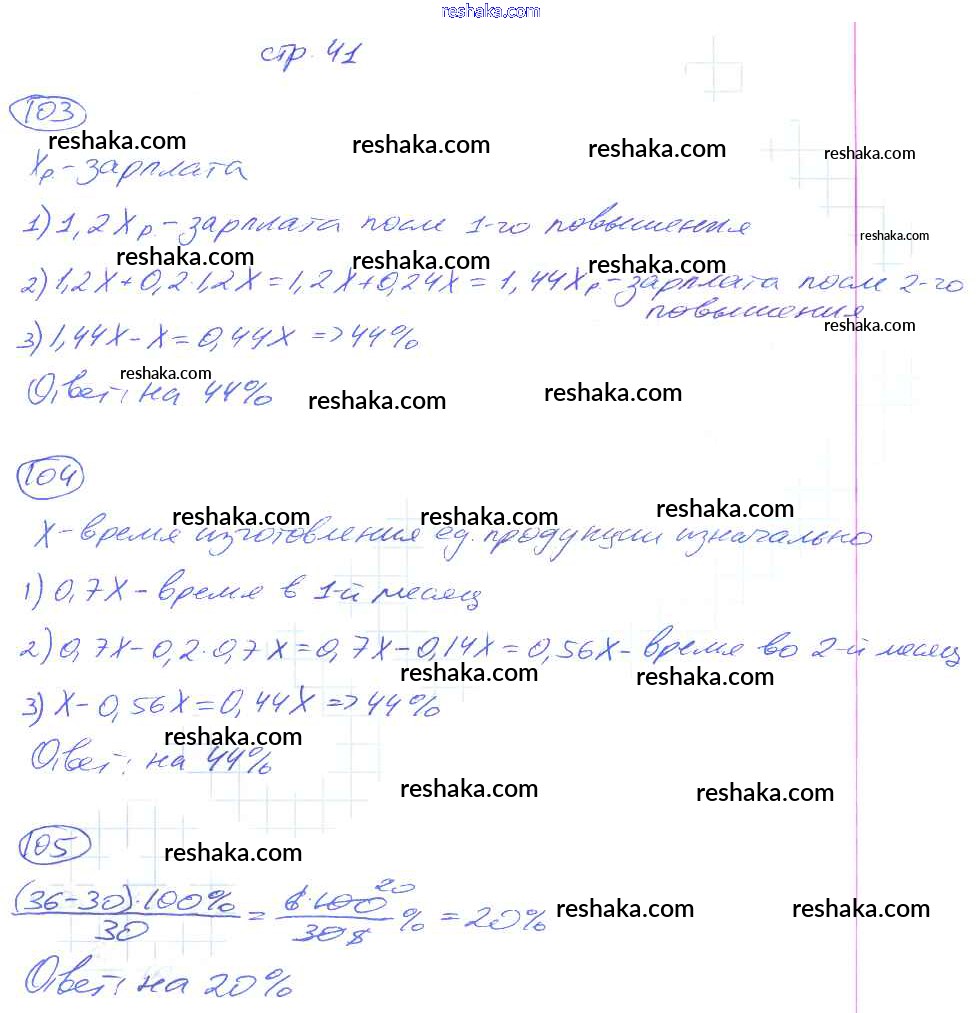 reshaka.com
стр. 41
103
reshaka.com reshaka.com reshaka.com reshaka.com
Xр. - зарплата
1) 1,2Xр. - зарплата после 1-го повышения
reshaka.com
reshaka.com reshaka.com reshaka.com
2) 1,2X+0,2·1,2X=1,2X+0,24X=1,44Xр - зарплата после 2-го
повышения
reshaka.com
3) 1,44X-X=0,44X => 44%
reshaka.com
Ответ: на 44%
reshaka.com reshaka.com
104
reshaka.com reshaka.com reshaka.com
X - время изготовления ед. продукции изначально
1) 0,7X - время в 1-й месяц
2) 0,7X-0,2·0,7X=0,7X-0,14X=0,56X - время во 2-й месяц
reshaka.com reshaka.com
3) X-0,56X=0,44X => 44%
reshaka.com
Ответ: на 44%
reshaka.com reshaka.com
105
reshaka.com
(36-30)·100%/30 = 6·100 20/30 5 % = 20%
reshaka.com reshaka.com
Ответ: на 20%